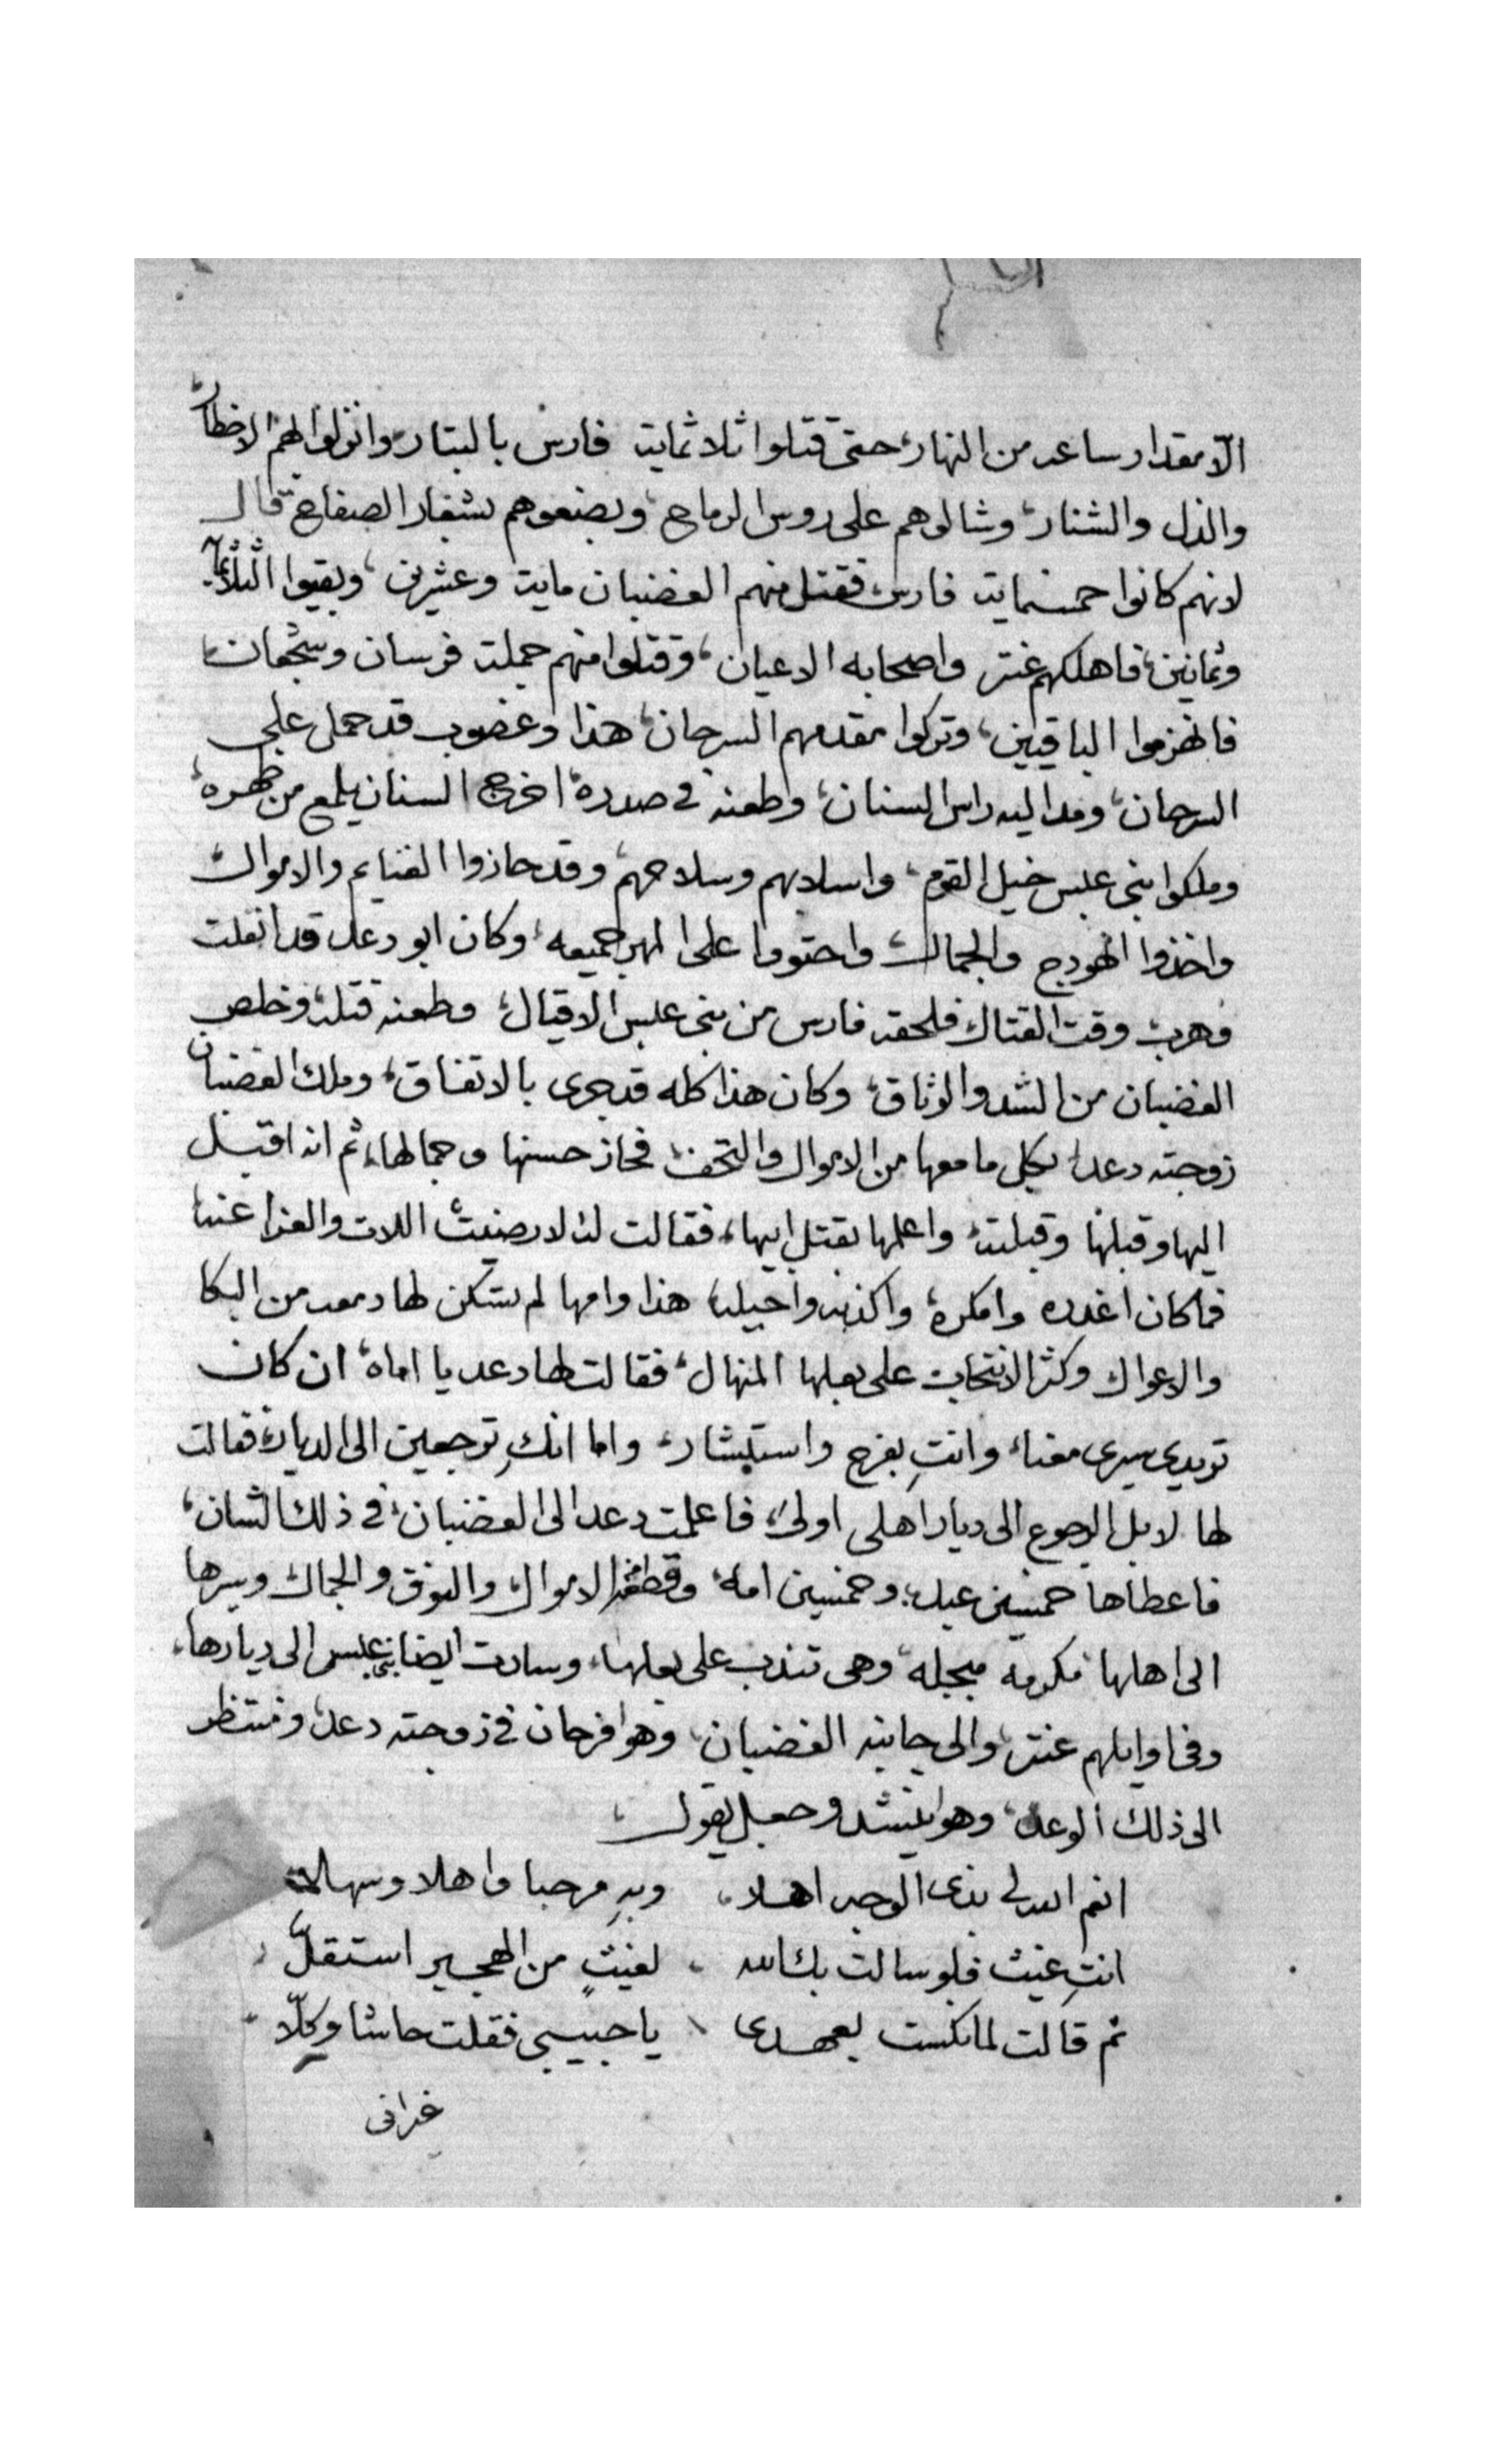 الّا مقدار ساعه من النهار، حتى قتلوا ثلاثمايه فارس بالبتار، وانزلوا بهم الاخطار
والذل والشنار، وشالوهم على روس الرماح، وبضعوهم بشفار الصفاح، قال
لانهم كانوا خمسمايه فارس فقتل منهم الغضبان مايه وعشرين، وبقيوا الثلاثمايه
وثمانين، فاهلكهم عنتر واصحابه الاعيان، وقتلوا منهم جملة فرسان وشجعان،
فانهزموا الباقيين، وتركوا مقدمهم السرحان، هذا وغضوب قد حمل على
السرحان، ومد اليه راس السنان، وطعنه في صدره، اخرج السنان يلمع من ظهره،
وملكوا بني عبس خيل القوم، واسلابهم وسلاحهم، وقد حازوا الغنايم والاموال
واخذوا الهودج والجمال، واحتووا على المهر جميعه، وكان ابو دعد قد انفلت
وهرب وقت القتال، فلحقه فارس من بني عبس الاقيال، وطعنه قتله، وخلص
الغضبان من الشد والوثاق، وكان هذا كله قد جرى بالاتفاق، وملك الغضبان
زوجته دعد، بكل ما معها من الاموال والتحف، فحاز حسنها وجمالها، ثم انه اقبل
اليها وقبلها وقبلته، واعلمها بقتل ابيها، فقالت له لا رضيت اللات والعزا عنه،
فما كان اغدره وامكره، واكذبه واحيله، هذا وامها لم تسكن لها دمعه من البكا
والاعوال وكثر الانتحاب على بعلها المنهال، فقالت لها دعد يا اماه، ان كان
تريدي سيري معنا، وانتِ بفرح واستبشار، واما انكِ ترجعين الى الديار، فقالت
لها لا بل الرجوع الى ديار اهلي اولى، فاعلمت دعد الى الغضبان، في ذلك الشان،
فاعطاها خمسين عبد، وخمسين امه، وقطعة من الاموال، والنوق والجمال، وسيرها
الى اهلها مكرمه مبجله، وهي تندب على بعلها، وسارت ايضا بني عبس الى ديارها،
وفي اوايلهم عنتر، والى جانبه الغضبان، وهوا فرحان في زوجته دعد، ومنتظر
الى ذلك الوعد، وهوا ينشد وجعل يقول،
انعم الله لي بذي الوجه اهلا، وبهِ مرحبا واهلا وسهلا
انتِ غيث فلو سالت بك الله، لغيثٍ من الهجير استقلّ
ثم قالت لما نكست بعهدي، يا حبيبي فقلت حاشا وكلّا